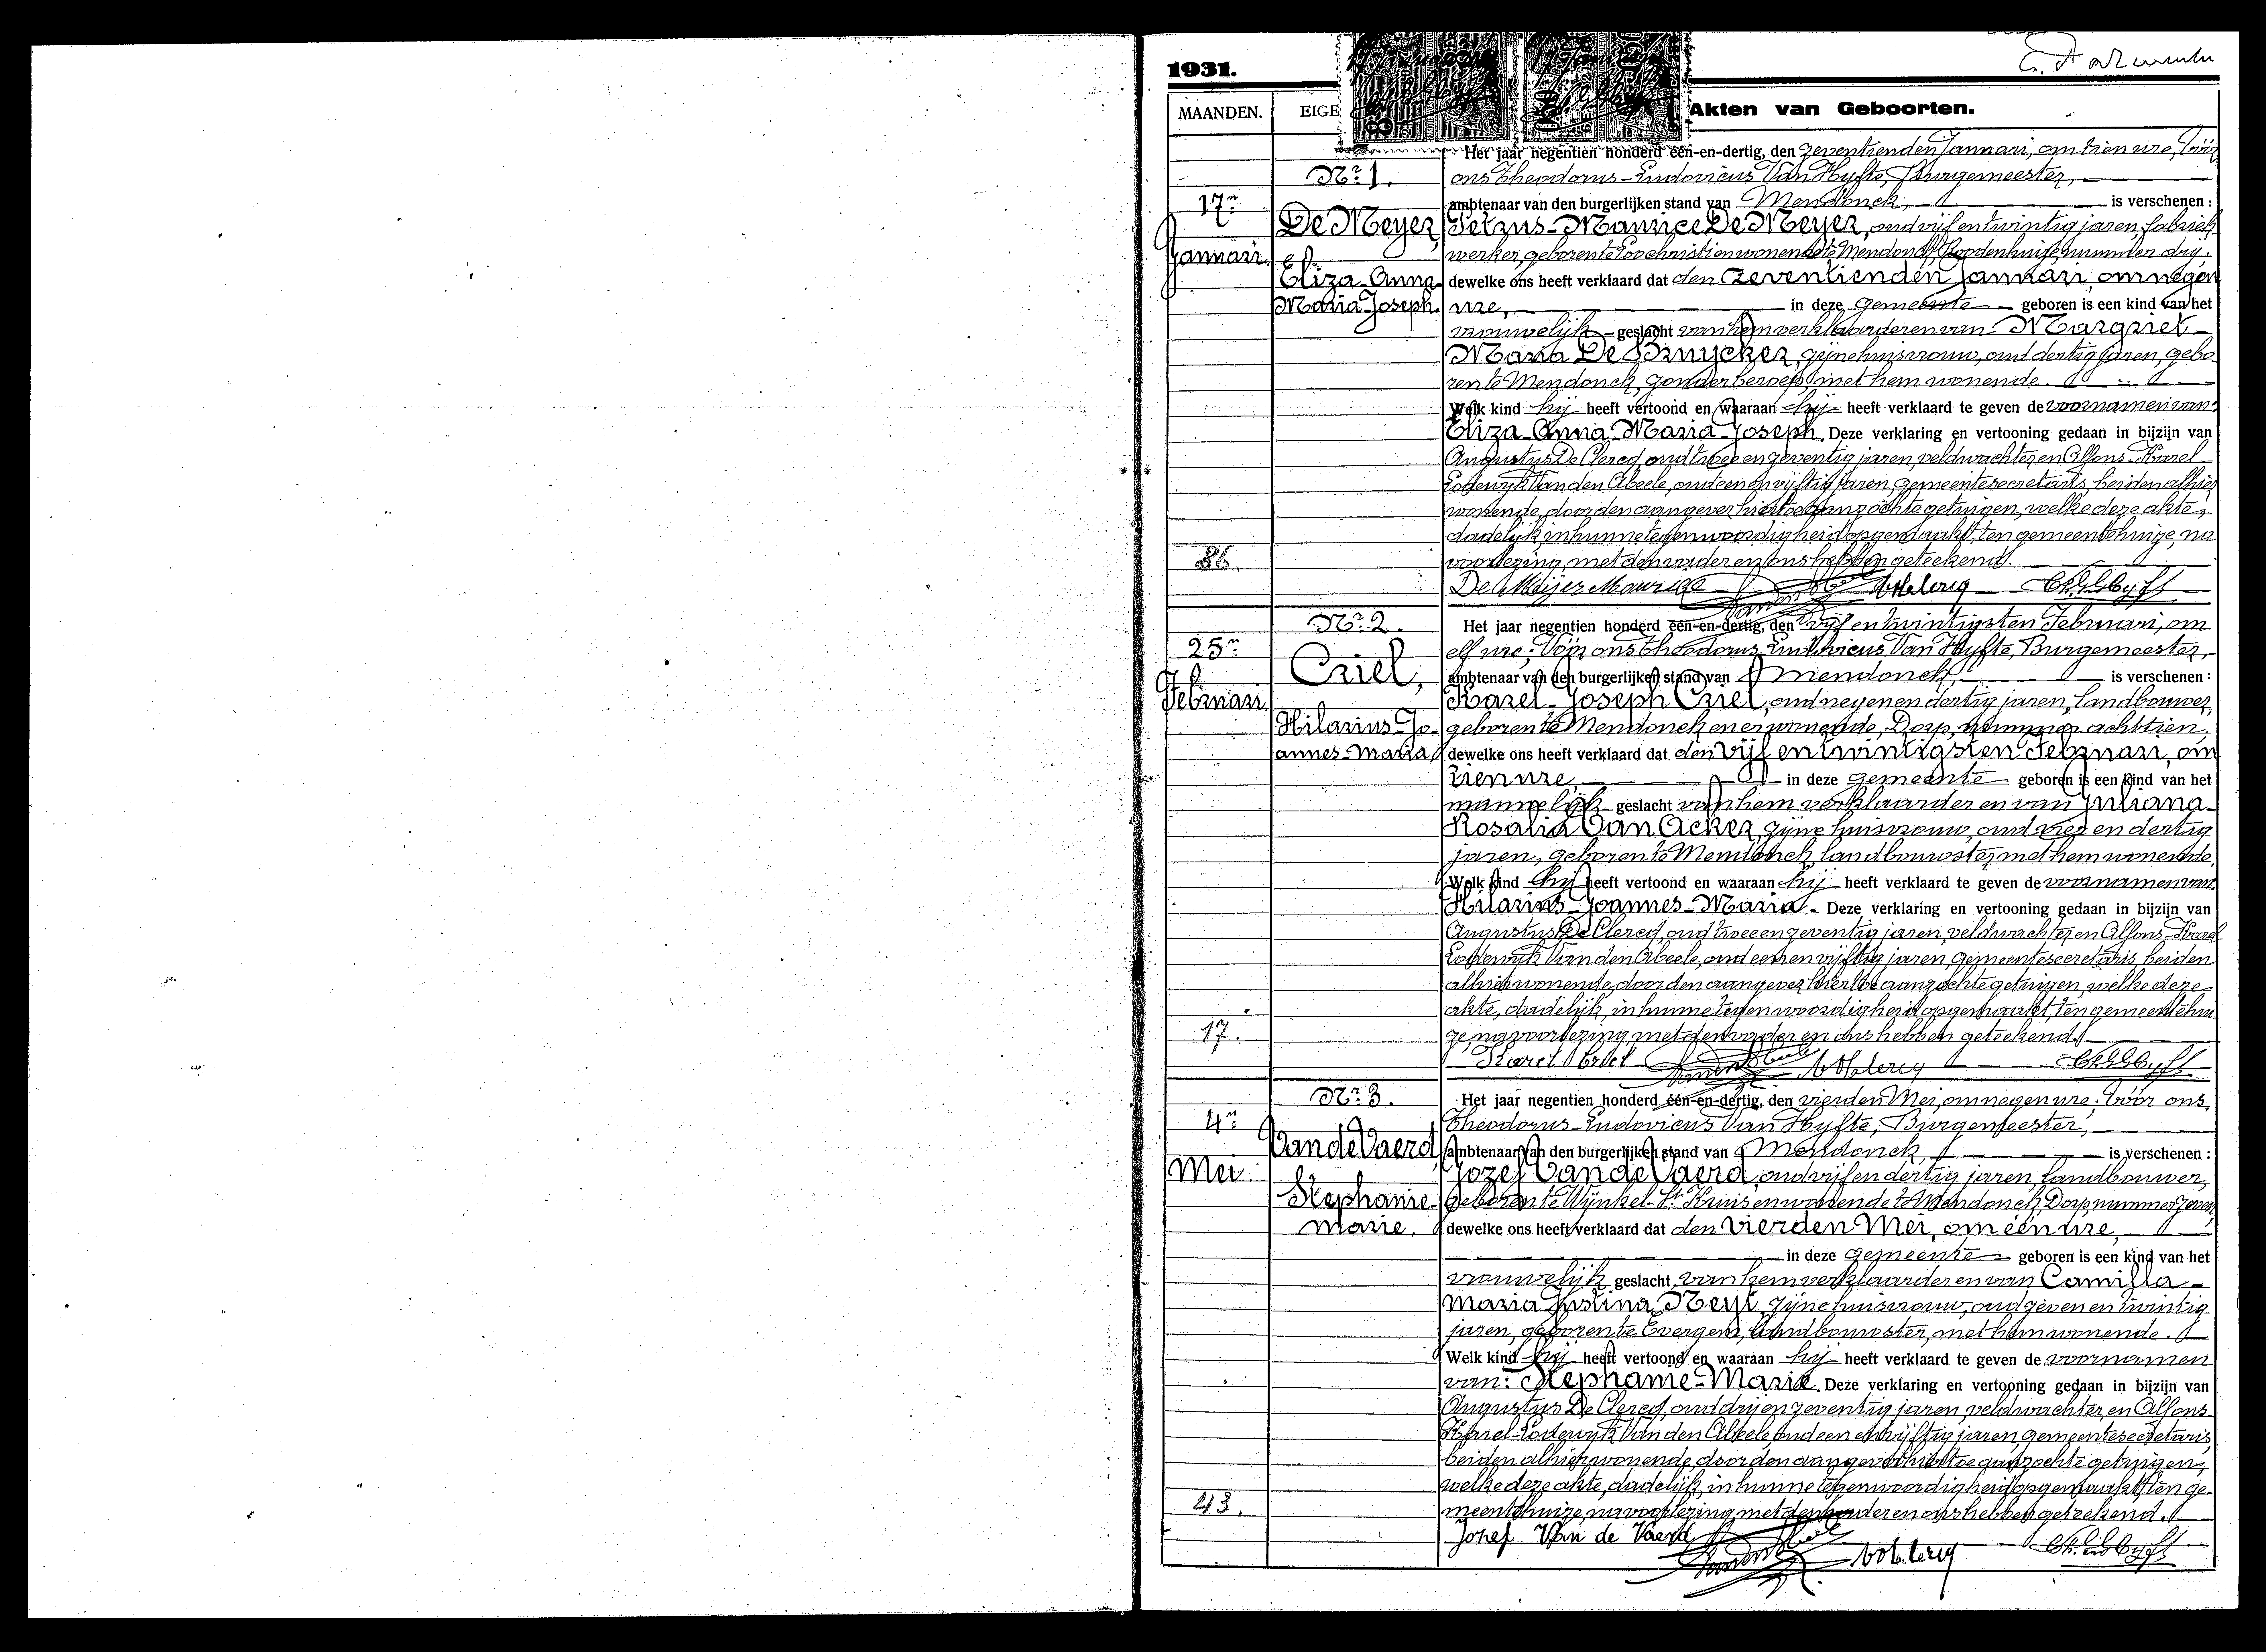 1931.
MAANDEN.
EIGE
Akten van Geboorten.
Het jaar negentien honderd één-en-dertig, den zeventienden Januari, om tien ure, Vóór
Nr. 1.
ons Theodorus-Ludovicus Van Hyfte, Burgemeester,
17n
ambtenaar van den burgerlijken stand van Mendonck, is verschenen :
De Meyer,
Petrus-Maurice De Meyer, oud vijf en twintig jaren, fabriek
Januari.
werker, geboren te Loochristi en wonende te Mendonck, nummer drij,
Eliza-Anna-
dewelke ons heeft verklaard dat den zeventienden Januari, om negen
Maria-Joseph.
ure, in deze gemeente geboren is een kind van het
vrouwelijk geslacht van hem verklaarder en van Margriet-
Maria De Bruycker, zijne huisvrouw, oud dertig jaren, gebo
ren te Mendonck, zonder beroep, met hem wonende.
Welk kind hij heeft vertoond en waaraan hij heeft verklaard te geven de voornamen van:
Eliza-Anna-Maria-Joseph. Deze verklaring en vertooning gedaan in bijzijn van
Augustus De Clercq, oud twee en zeventig jaren, veldwachter en Alfons-Karel-
Lodewijk Van den Abeele, oud een en vijftig jaren, gemeentesecretaris, beiden alhier
wonende, door den aangever hiertoe aanzochte getuigen, welke deze akte,
dadelijk, in hunne tegenwoordigheid opgemaakt, ten gemeentehuize, na
86.
voorlezing, met den vader en ons hebben geteekend.
De Meijer Maurice
Nr. 2.
Het jaar negentien honderd één-en-dertig, den vijf en twintigsten Februari, om
25n
elf ure; Vóór ons Theodorus-Ludovicus Van Hyfte, Burgemeester,
Criel,
ambtenaar van den burgerlijken stand van Mendonck, is verschenen :
Februari.
Karel-Joseph Criel, oud negen en dertig jaren, landbouwer,
Hilarius-Jo-
geboren te Mendonck en er wonende, Dorp, nummer achttien,
annes-Maria,
dewelke ons heeft verklaard dat den vijf en twintigsten Februari, om
tien ure, in deze gemeente geboren is een kind van het
mannelijk geslacht van hem verklaarder en van Juliana-
Rosalia Van Acker, zijne huisvrouw, oud vier en dertig
jaren, geboren te Mendonck, landbouwster, met hem wonende.
Welk kind hij heeft vertoond en waaraan hij heeft verklaard te geven de voornamen van:
Hilarius-Joannes-Maria. Deze verklaring en vertooning gedaan in bijzijn van
Augustus De Clercq, oud twee en zeventig jaren, veldwachter en Alfons-Karel
Lodewijk Van den Abeele, oud een en vijftig jaren, gemeentesecretaris, beiden
alhier wonende, door den aangever hiertoe aanzochte getuigen, welke deze
akte, dadelijk, in hunne tegenwoordigheid opgemaakt, ten gemeentehui
17.
ze, na voorlezing, met den vader en ons hebben geteekend.
Karel Criel
Nr. 3.
Het jaar negentien honderd één-en-dertig, den vierden Mei, om negen ure; Vóór ons,
4n
Theodorus-Ludovicus Van Hyfte, Burgemeester,
Van de Vaerd,
ambtenaar van den burgerlijken stand van Mendonck, is verschenen :
Mei.
Jozef Van de Vaerd, oud vijf en dertig jaren, landbouwer,
Stephanie-
geboren te Wynkel-St Kruis en wonende te Mendonck, Dorp, nummer zeven,
Marie.
dewelke ons heeft verklaard dat den vierden Mei, om één ure,
in deze gemeente geboren is een kind van het
vrouwelijk geslacht, van hem verklaarder en van Camilla-
Maria Justina Neyt, zijne huisvrouw, oud zeven en twintig
jaren, geboren te Evergem, landbouwster, met hem wonende.
Welk kind hij heeft vertoond en waaraan hij heeft verklaard te geven de voornamen
van: Stephanie-Marie. Deze verklaring en vertooning gedaan in bijzijn van
Augustus De Clercq, oud drij en zeventig jaren, veldwachter, en Alfons-
Karel-Lodewijk Van den Abeele, oud een en vijftig jaren, gemeentesecretaris,
beiden alhier wonende, door den aangever hiertoe aanzochte getuigen,
welke deze akte, dadelijk, in hunne tegenwoordigheid opgemaakt, ten ge-
43.
meentehuize, na voorlezing met den vader en ons hebben geteekend.
Jozef Van de Vaerd